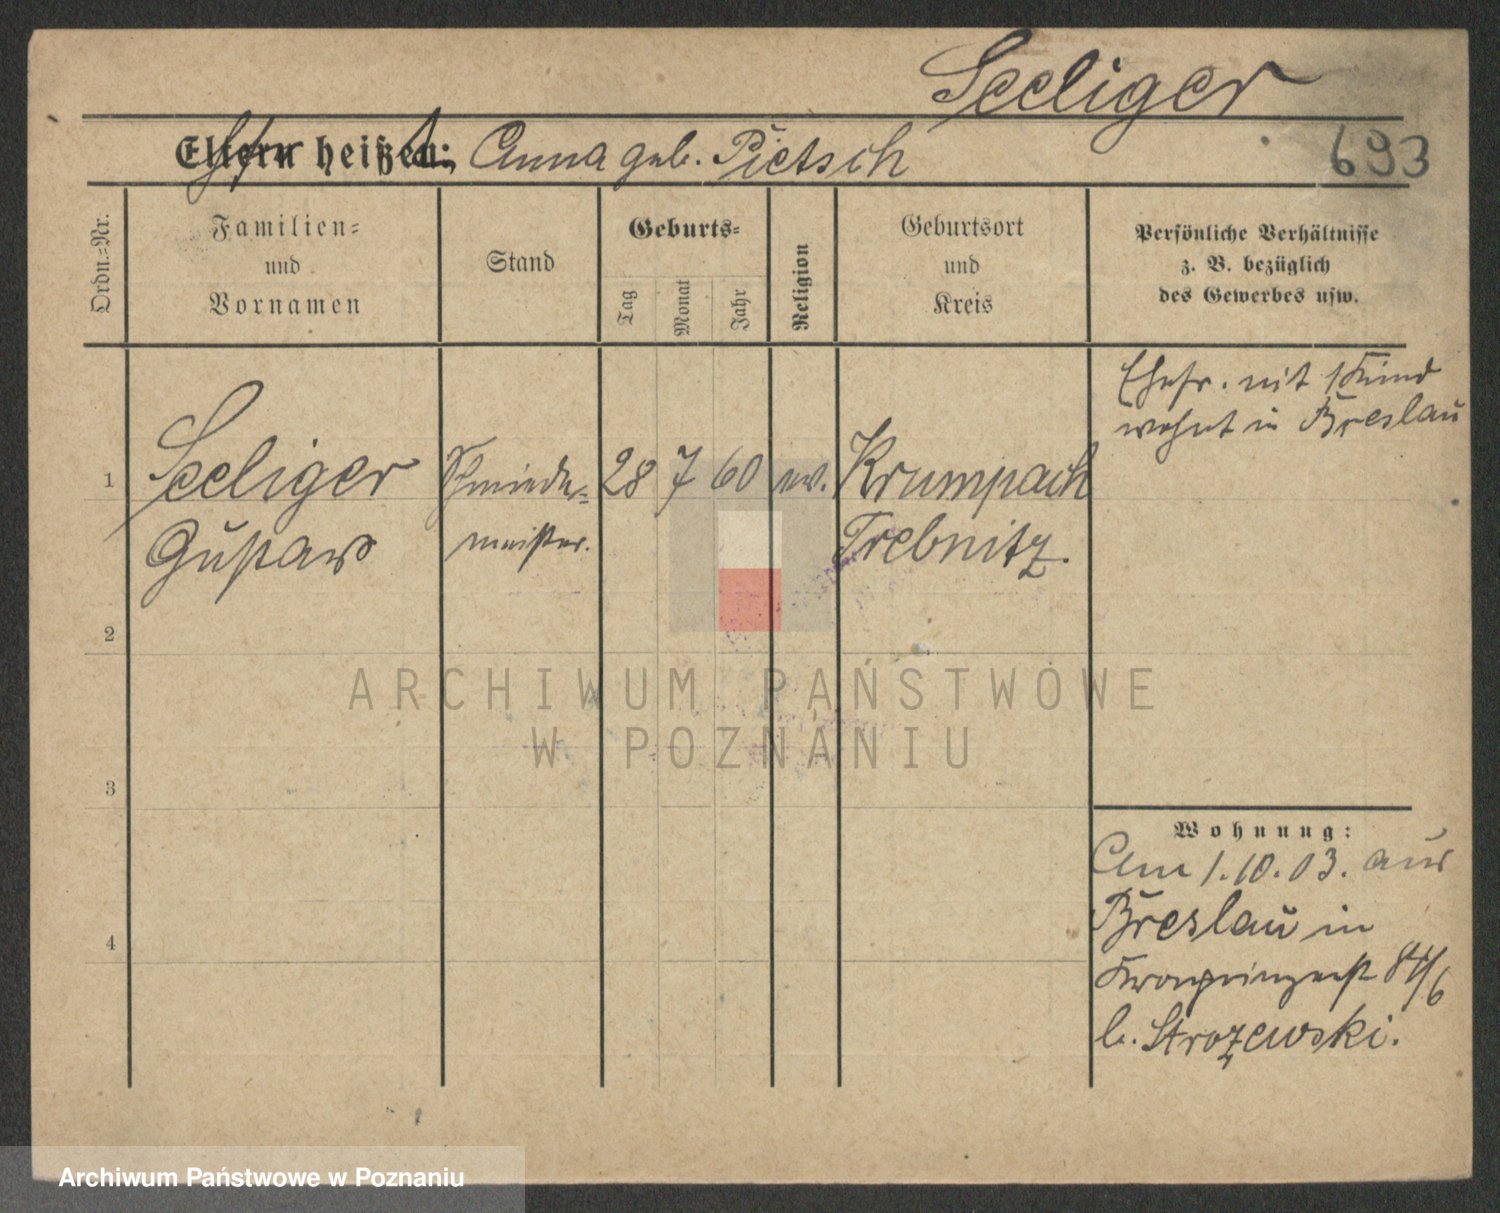 Seeliger
Eltern heißen: Anna geb. Pietsch
693
Ordn.-Nr.
Familien-
und
Vornamen
Stand
Geburts-
Tag
Monat
Jahr
Religion
Geburtsort
und
Kreis
Persönliche Verhältnisse
z. B. bezüglich
des Gewerbes usw.
1
Seeliger
Gustav
Schmiede-
meister.
28 7 60
ev.
Krumpach
Trebnitz.
Ehefr. mit 1 Kind
wohnt in Breslau
2
3
4
Wohnung:
Am 1.10.03. aus
Breslau in
Kronprinzenst
b. Strozewski.
ARCHIWUM PAŃSTWOWE
W POZNANIU
Archiwum Państwowe w Poznaniu